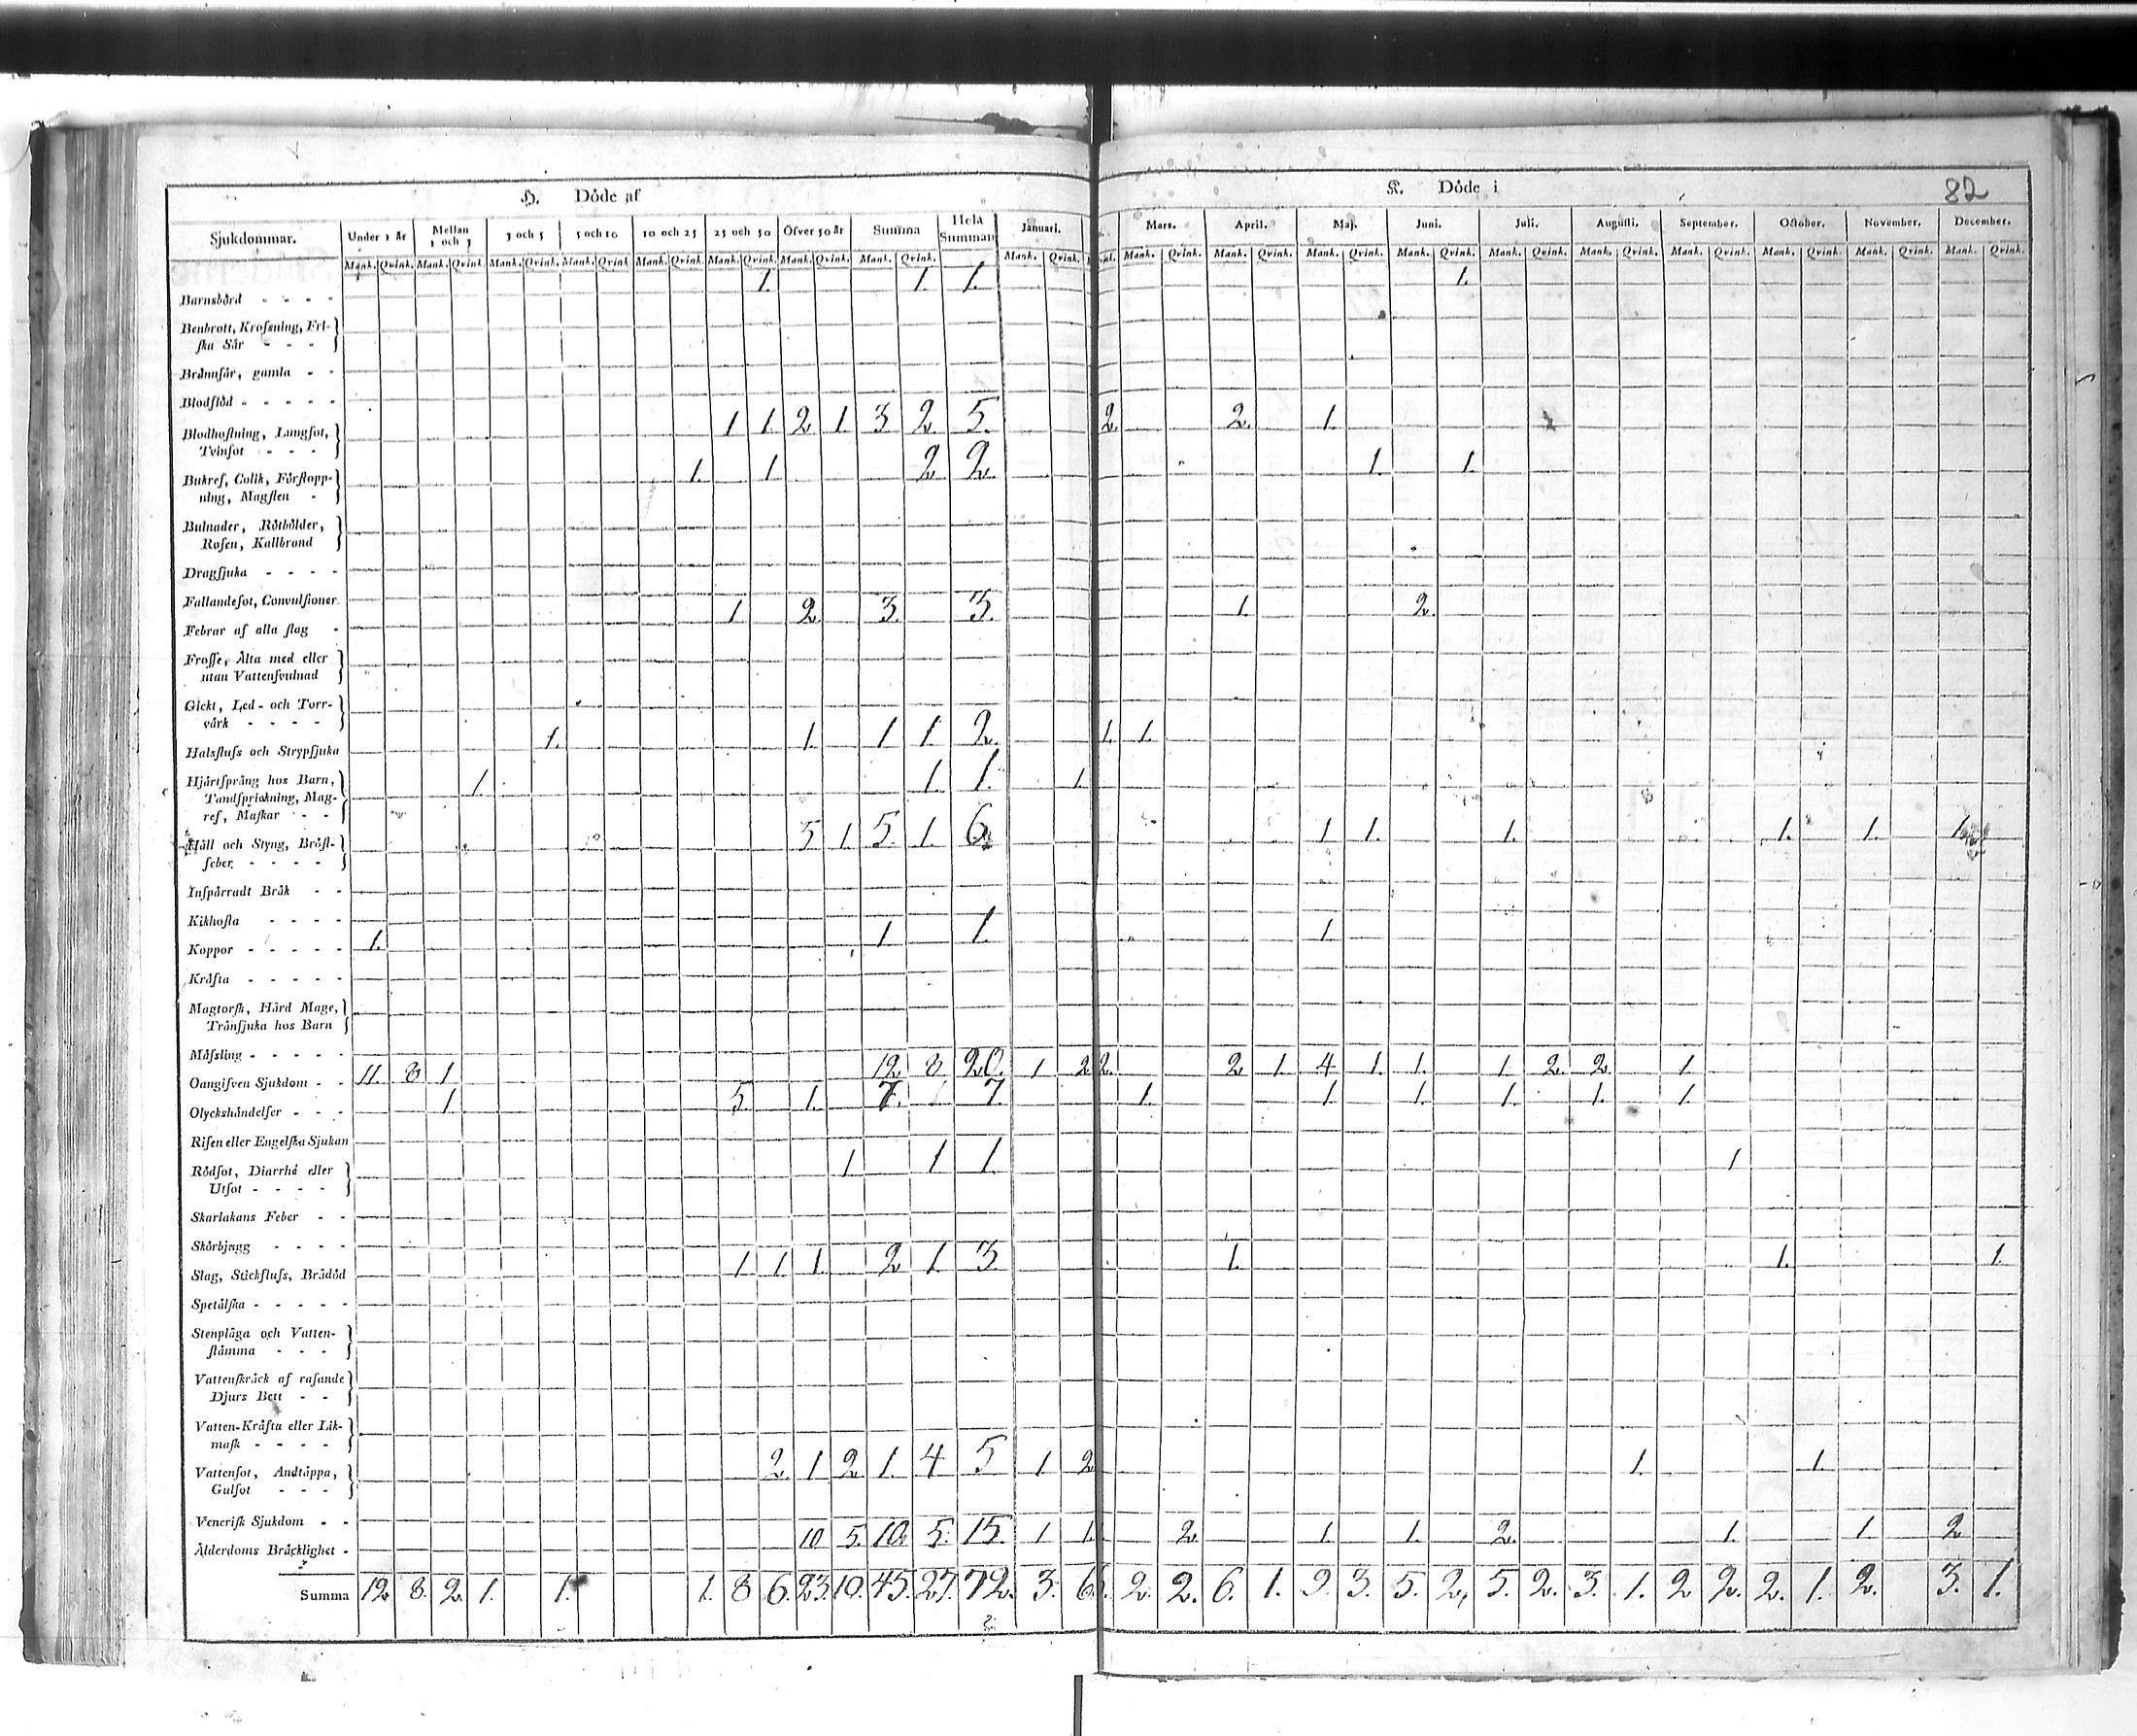 H. Döde af
K. Döde i
82
Sjukdommar. Under 1 år Mellan 1 och 3 3 och 5 5 och 10 10 och 25 25 och 50 Öfver 50 år Summa Hela Summan Januari. Mars. April. Maj. Juni. Juli. Augusti. September. October. November. December.
Mank. Qvink. Mank. Qvink. Mank. Qvink. Mank. Qvink Mank. Qvink. Mank. Qvink. Mank. Qvink. Mank. Qvink. Mank. Qvink. Mank. Qvink. Mank. Qvink. Mank. Qvink. Mank. Qvink. Mank. Qvink. Mank. Qvink. Mank. Qvink. Mank. Qvink. Mank. Qvink. Mank. Qvink.
Barnsbörd - - - - 1. 1. 1. 1.
Benbrott, Krossning, Fri-
ska Sår - - -
Brännsår, gamla - -
Blodstöd - - - - -
Blodhostning, Lungsot, 1 1. 2 1. 3 2 5. 2. 2. 1.
Tvinsot - - -
Bukref, Colik, Förstopp- 1. 1. 2 2. 1. 1.
ning, Magsten -
Bulnader, Rötbölder,
Rosen, Kallbrand
Dragsjuka - - - -
Fallandesot, Convulsioner
Febrar af alla slag - 1. 2 3. 3. 1. 2.
Frossa, Älta med eller
utan Vattensvulnad
Gickt, Led- och Torr-
värk - - - -
Halsfluss och Strypsjuka 1. 1. 1 1. 2. 1. 1.
Hjärtsprång hos Barn, 1. 1 1. 1.
Tandsprickning, Mag-
ref, Maskar - -
Håll och Styng, Bröst- 5 1 5. 1. 6 1 1. 1. 1. 1. 1.
feber - - - -
Inspärradt Bråk - -
Kikhosta - - - -
Koppor - - - - - 1. 1 1. 1.
Kräfta - - - - -
Magtorsk, Hård Mage,
Trånsjuka hos Barn
Mässling - - - - -
Oangifven Sjukdom - - 11. 8 1 12 8 20. 1 2 2. 2 1 4 1. 1. 1 2. 2. 1
Olyckshändelser - - - 1. 5. 1. 7. 7. 1. 1. 1. 1. 1. 1.
Risen eller Engelska Sjukan
Rödsot, Diarrhé eller 1 1 1. 1
Utsot - - - -
Skarlakans Feber - -
Skörbjugg - - - -
Slag, Stickfluss, Brådöd 1. 1. 1. 2 1. 3. 1. 1. 1.
Spetälska - - - - -
Stenplåga och Vatten-
stämma - - -
Vattenskräck af rasande
Djurs Bett - -
Vatten-Kräfta eller Lik-
mask - - - -
Vattensot, Andtäppa, 2 1 2 1. 4 5 1 2 1. 1.
Gulsot - - -
Venerisk Sjukdom - -
Ålderdoms Bräcklighet - 10 5. 10. 5. 15. 1 1. 2. 1. 1. 2. 1. 1 2
Summa 12 8. 2. 1. 1. 1. 8 6. 23. 10. 45. 27. 72. 3. 6. 2. 2. 6. 1. 9. 3. 5. 2. 5. 2. 3. 1. 2 2. 2. 1. 2. 3. 1.